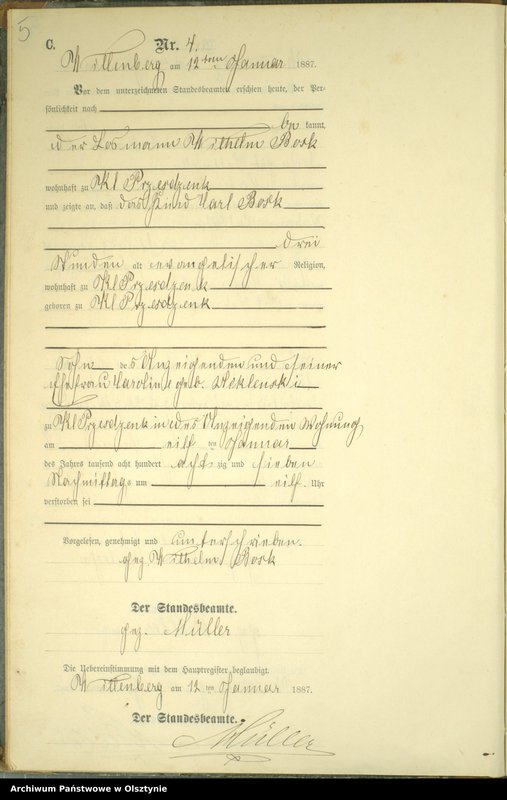 5
C. Nr. 4.
Wittenberg am 12ten Januar 1887.
Vor dem unterzeichneten Standesbeamten erschien heute, der Per-
sönlichkeit nach
be kannt,
der Losmann Wilhelm Bork
wohnhaft zu Kl Przesdzenk
und zeigte an, daß das Kind Carl Bork
drei
Stunden alt evangelischer Religion,
wohnhaft zu Kl Przesdzenk
geboren zu Kl Przesdzenk
Sohn des Anzeigenden und seiner
Ehefrau Caroline geb.
zu Kl Przesdzenk in des Anzeigenden Wohnung
am eilf ten Januar
des Jahrs tausend acht hundert acht zig und sieben
Nachmittags um eilf Uhr
verstorben sei
Vorgelesen, genehmigt und unterschrieben.
gez. Wilhelm Bork
Der Standesbeamte.
gez. Müller
Die Uebereinstimmung mit dem Hauptregister beglaubigt.
Wittenberg am 12 ten Januar 1887.
Der Standesbeamte.
Müller
Archiwum Państwowe w Olsztynie